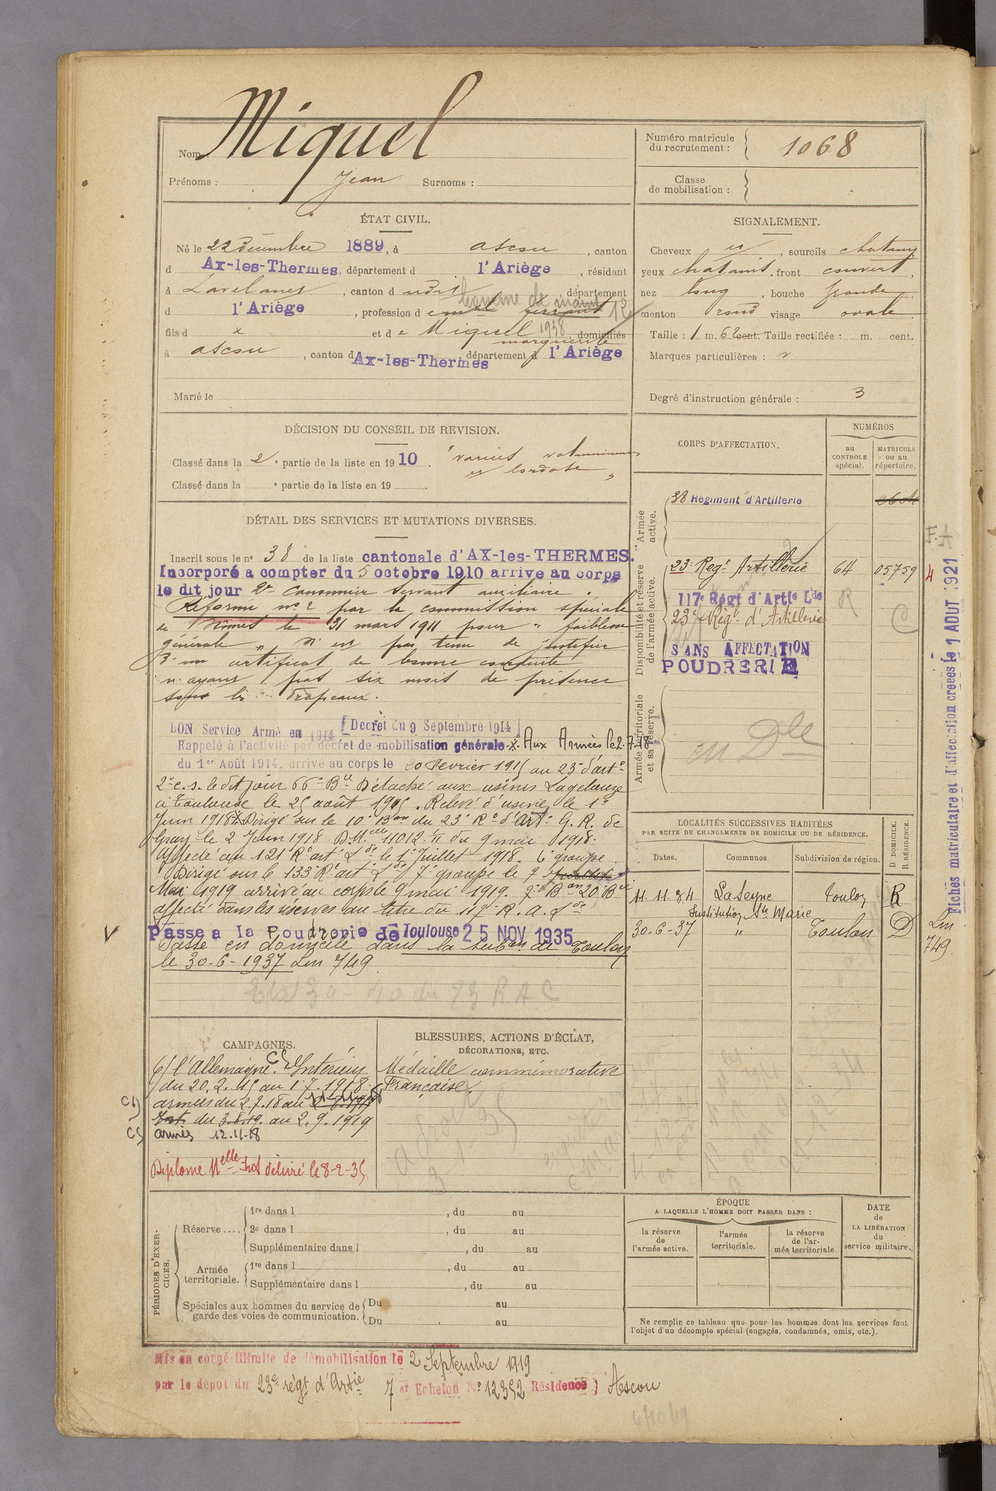 Nom Miquel
Prénoms : Jean Surnoms :
Numéro matricule du recrutement : 1068
Classe de mobilisation :
ÉTAT CIVIL.
Né le 22 Décembre 1889, à Ascou, canton
d Ax-les-Thermes, département d l'Ariège, résidant
à Lavelanet, canton d udit, département
d l'Ariège, profession d
fils d x et d e Miquel Marguerite, domiciliés
à Ascou, canton d Ax-les-Thermes département d l'Ariège
Marié le
SIGNALEMENT.
Cheveux , sourcils chatains
yeux chatains, front couvert,
nez long, bouche grande,
menton rond visage ovale
Taille : 1 m. 62 cent. Taille rectifiée : m. cent.
Marques particulières :
Degré d'instruction générale : 3
DÉCISION DU CONSEIL DE REVISION.
Classé dans la 2e partie de la liste en 1910. varices
lordose
Classé dans la e partie de la liste en 19
DÉTAIL DES SERVICES ET MUTATIONS DIVERSES.
Inscrit sous le n° 38 de la liste cantonale d'AX-les-THERMES.
Incorporé a compter du 5 octobre 1910 arrivé au corps
le dit jour 2e Canonnier servant auxiliaire.
Réformé n° 2 par la commission spéciale
de Nimes le 31 mars 1911 pour " faiblesse
générale " N'est pas tenu de justifier
d'un certificat de bonne conduite
n'ayant pas six mois de présence
sous les Drapeaux.
BON Service Armé en 1914 [Decrèt du 9 Septembre 1914]
Rappelé à l'activité par décret de mobilisation générale Aux Armées le 2.7.18
du 1er Août 1914, arrivé au corps le 20 Février 1915 au 23e d'artie
2e c. s. le dit jour 66e Bie Détaché aux usines Lagelouze
à Toulouse le 25 août 1915. Relevé d'usine le 1er
Juin 1918. Dirigé sur le 10e Bon du 23e Rt d'Art. G. R. de
le 2 Juin 1918 D.Mlle 11012 du 9 mai 1918.
Affecté au 121 Rt art. Lde le 1er Juillet 1918. 6e groupe.
Dirigé sur le 133e Rt art Lde 7e groupe le 7
Mai 1919 arrivé au corps le 9 mai 1919. 20 Bie
affecté dans les réserves au titre du 117e R. A. Lde
Passé a la Poudrerie de Toulouse 25 NOV 1935
Passé en domicile dans la subon de Toulon
le 30-6-1937 Lm 749
CORPS D'AFFECTATION.
NUMÉROS
au CONTROLE spécial.
MATRICULE ou au répertoire.
Armée active.
38 Régiment d'Artillerie
Disponibilité et réserve de l'armée active.
23e Regt Artillerie 64 05759
117e Régt d'Artie Lde
23e Rég. d'Artillerie
SANS AFFECTATION
POUDRERIE
Armée territoriale et sa réserve.
en Dle
Fiches matriculaire et d'affectation créées le 1 AOUT 1921
LOCALITÉS SUCCESSIVES HABITÉES
PAR SUITE DE CHANGEMENTS DE DOMICILE OU DE RÉSIDENCE.
Dates. Communes Subdivision de région. D DOMICILE. R RÉSIDENCE.
11.11.34 La Seyne Toulon R
Institution Ste Marie
30-6-37 " Toulon D Lm 749
CAMPAGNES.
C/ l'Allemagne. CS Intérieur
du 20.2.15 au 1.7.1918.
armées du 2.7.18 au
du 3.8.19. au 2.9.1919
armées 12.11.18
Diplome Melle délivré le 8-2-35
BLESSURES, ACTIONS D'ÉCLAT,
DÉCORATIONS, ETC.
Médaille commémorative
Française.
PÉRIODES D'EXERCICES.
Réserve....
1re dans l , du au
2e dans l , du au
Supplémentaire dans l , du au
Armée territoriale.
1re dans l , du au
Supplémentaire dans l , du au
Spéciales aux hommes du service de garde des voies de communication.
Du au
Du au
ÉPOQUE
A LAQUELLE L'HOMME DOIT PASSER DANS :
la réserve de l'armée active.
l'armée territoriale.
la réserve de l'armée territoriale.
DATE de LA LIBÉRATION du service militaire.
Ne remplir ce tableau que pour les hommes dont les services font
l'objet d'un décompte spécial (engagés, condamnés, omis, etc.).
Mis en congé illimité de démobilisation le 2 Septembre 1919
par le dépot du 23e régt d'Artie 7 er Echelon N° 12352 Résidence ) Ascou